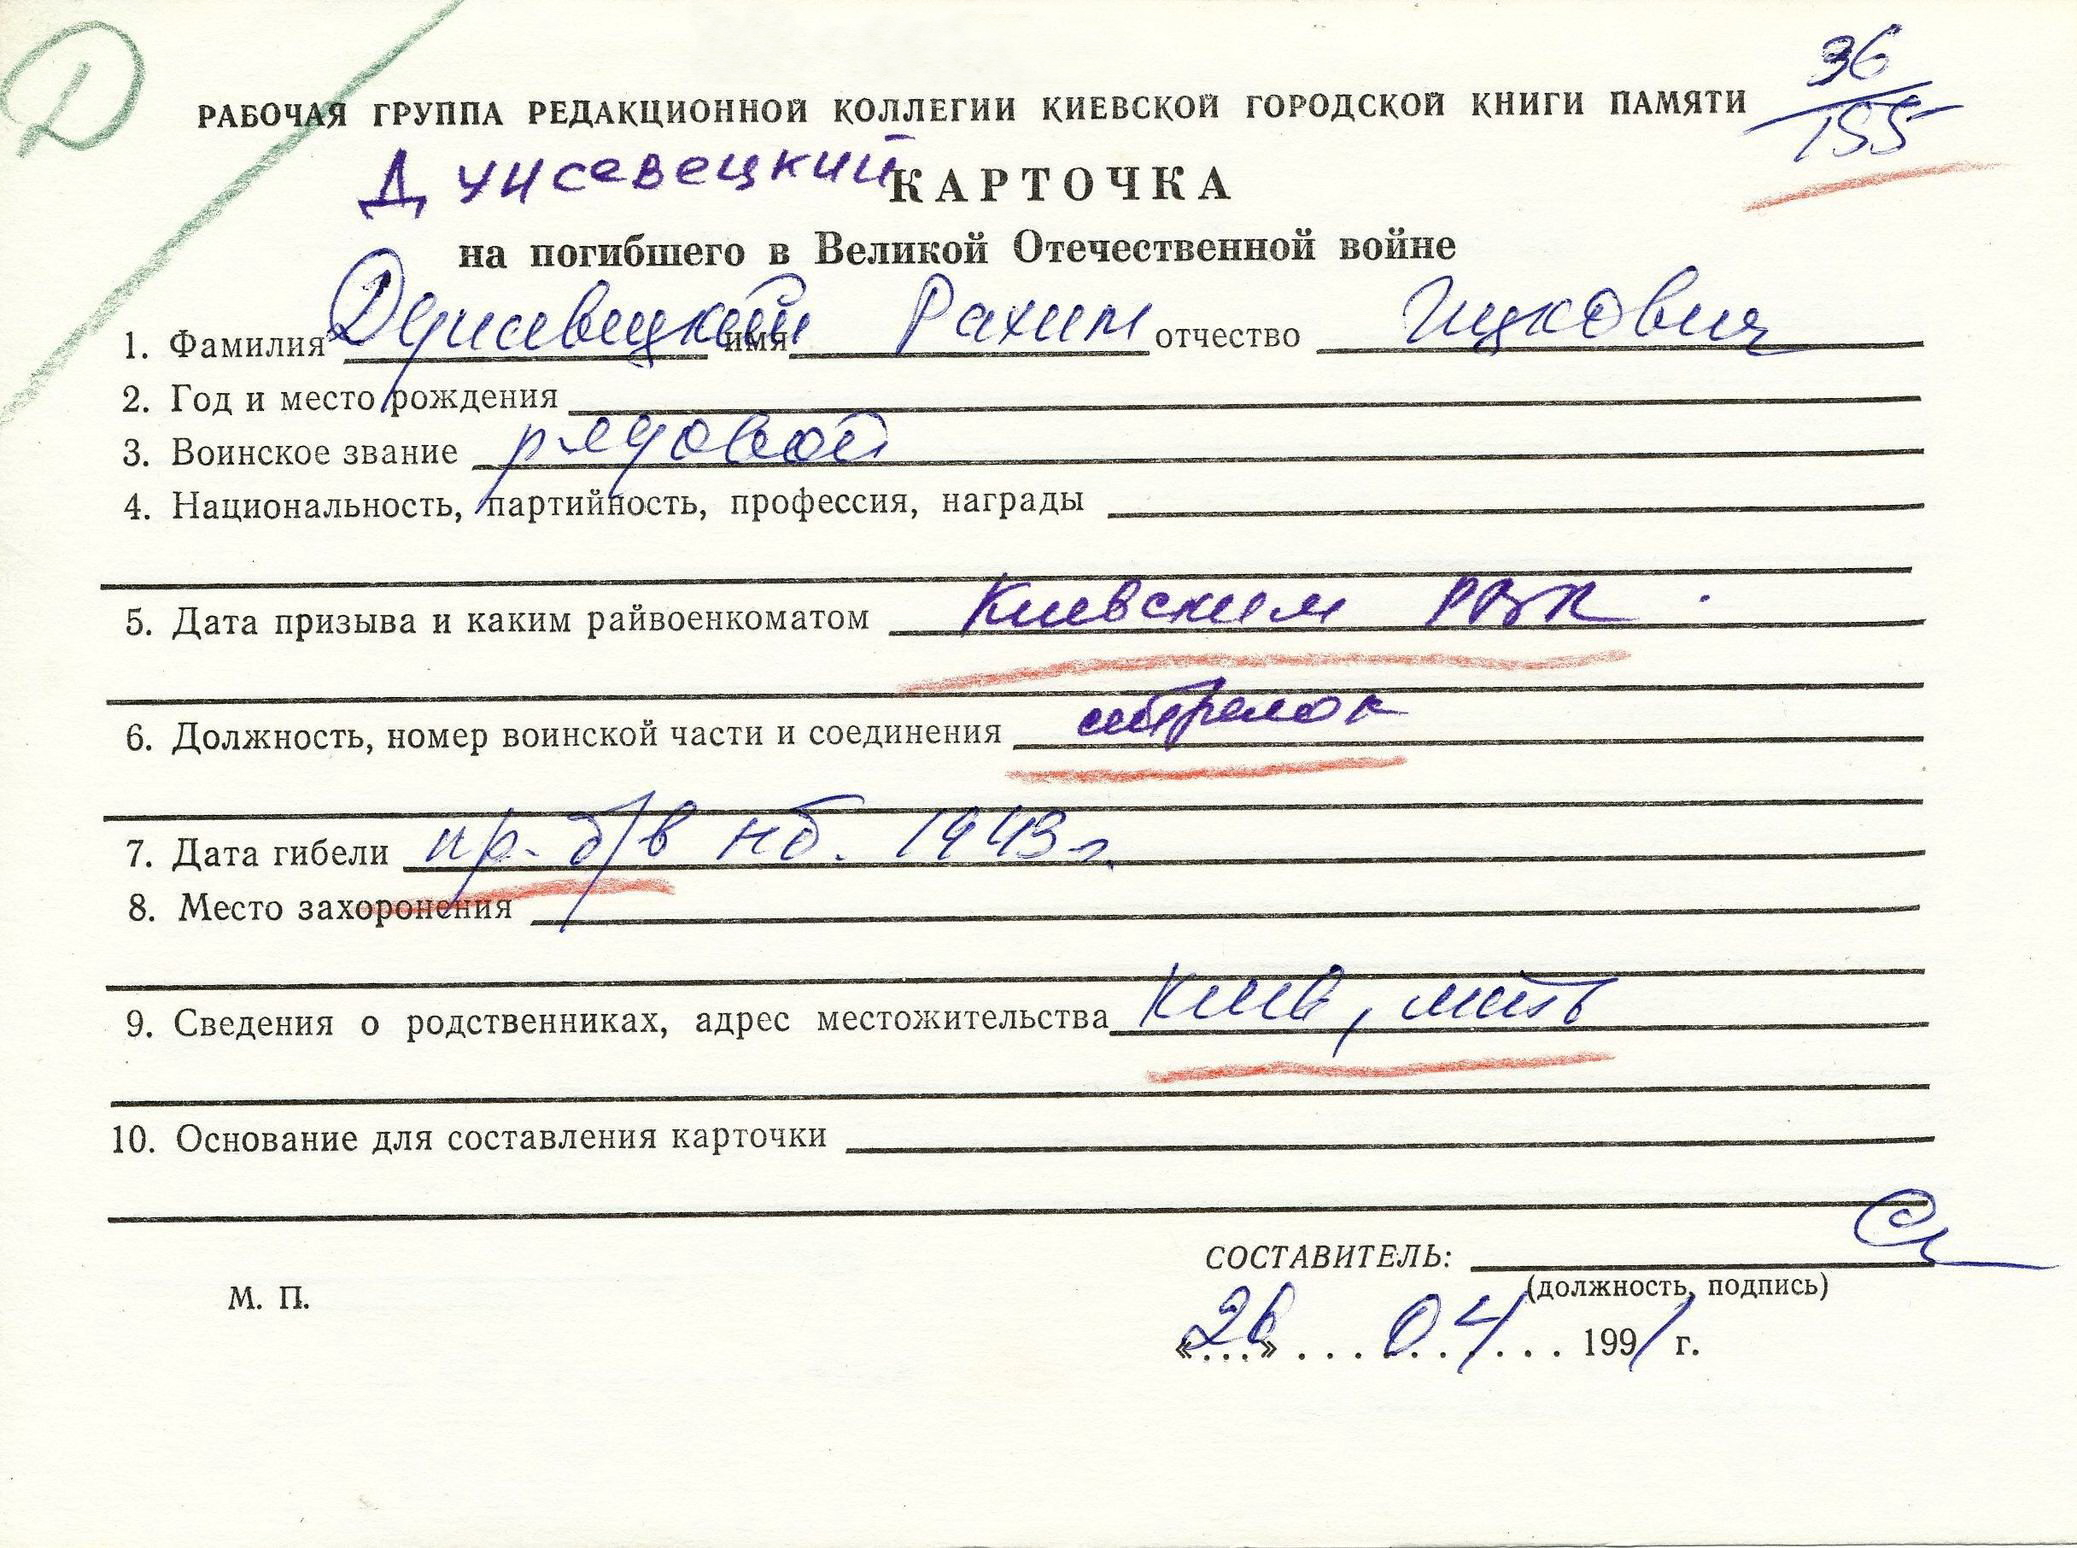 Д
36
РАБОЧАЯ ГРУППА РЕДАКЦИОННОЙ КОЛЛЕГИИ КИЕВСКОЙ ГОРОДСКОЙ КНИГИ ПАМЯТИ
155
Дунсевецкий
КАРТОЧКА
на погибшего в Великой Отечественной войне
1. Фамилия Дунсевецкий имя Рахим отчество Ицкович
2. Год и место рождения
3. Воинское звание рядовой
4. Национальность, партийность, профессия, награды
5. Дата призыва и каким райвоенкоматом Киевским РВК
6. Должность, номер воинской части и соединения стрелок
7. Дата гибели пр. б/в нб. 1943 г.
8. Место захоронения
9. Сведения о родственниках, адрес местожительства Киев, мать
10. Основание для составления карточки
СОСТАВИТЕЛЬ:
(должность, подпись)
М. П.
«26» 04 1991 г.